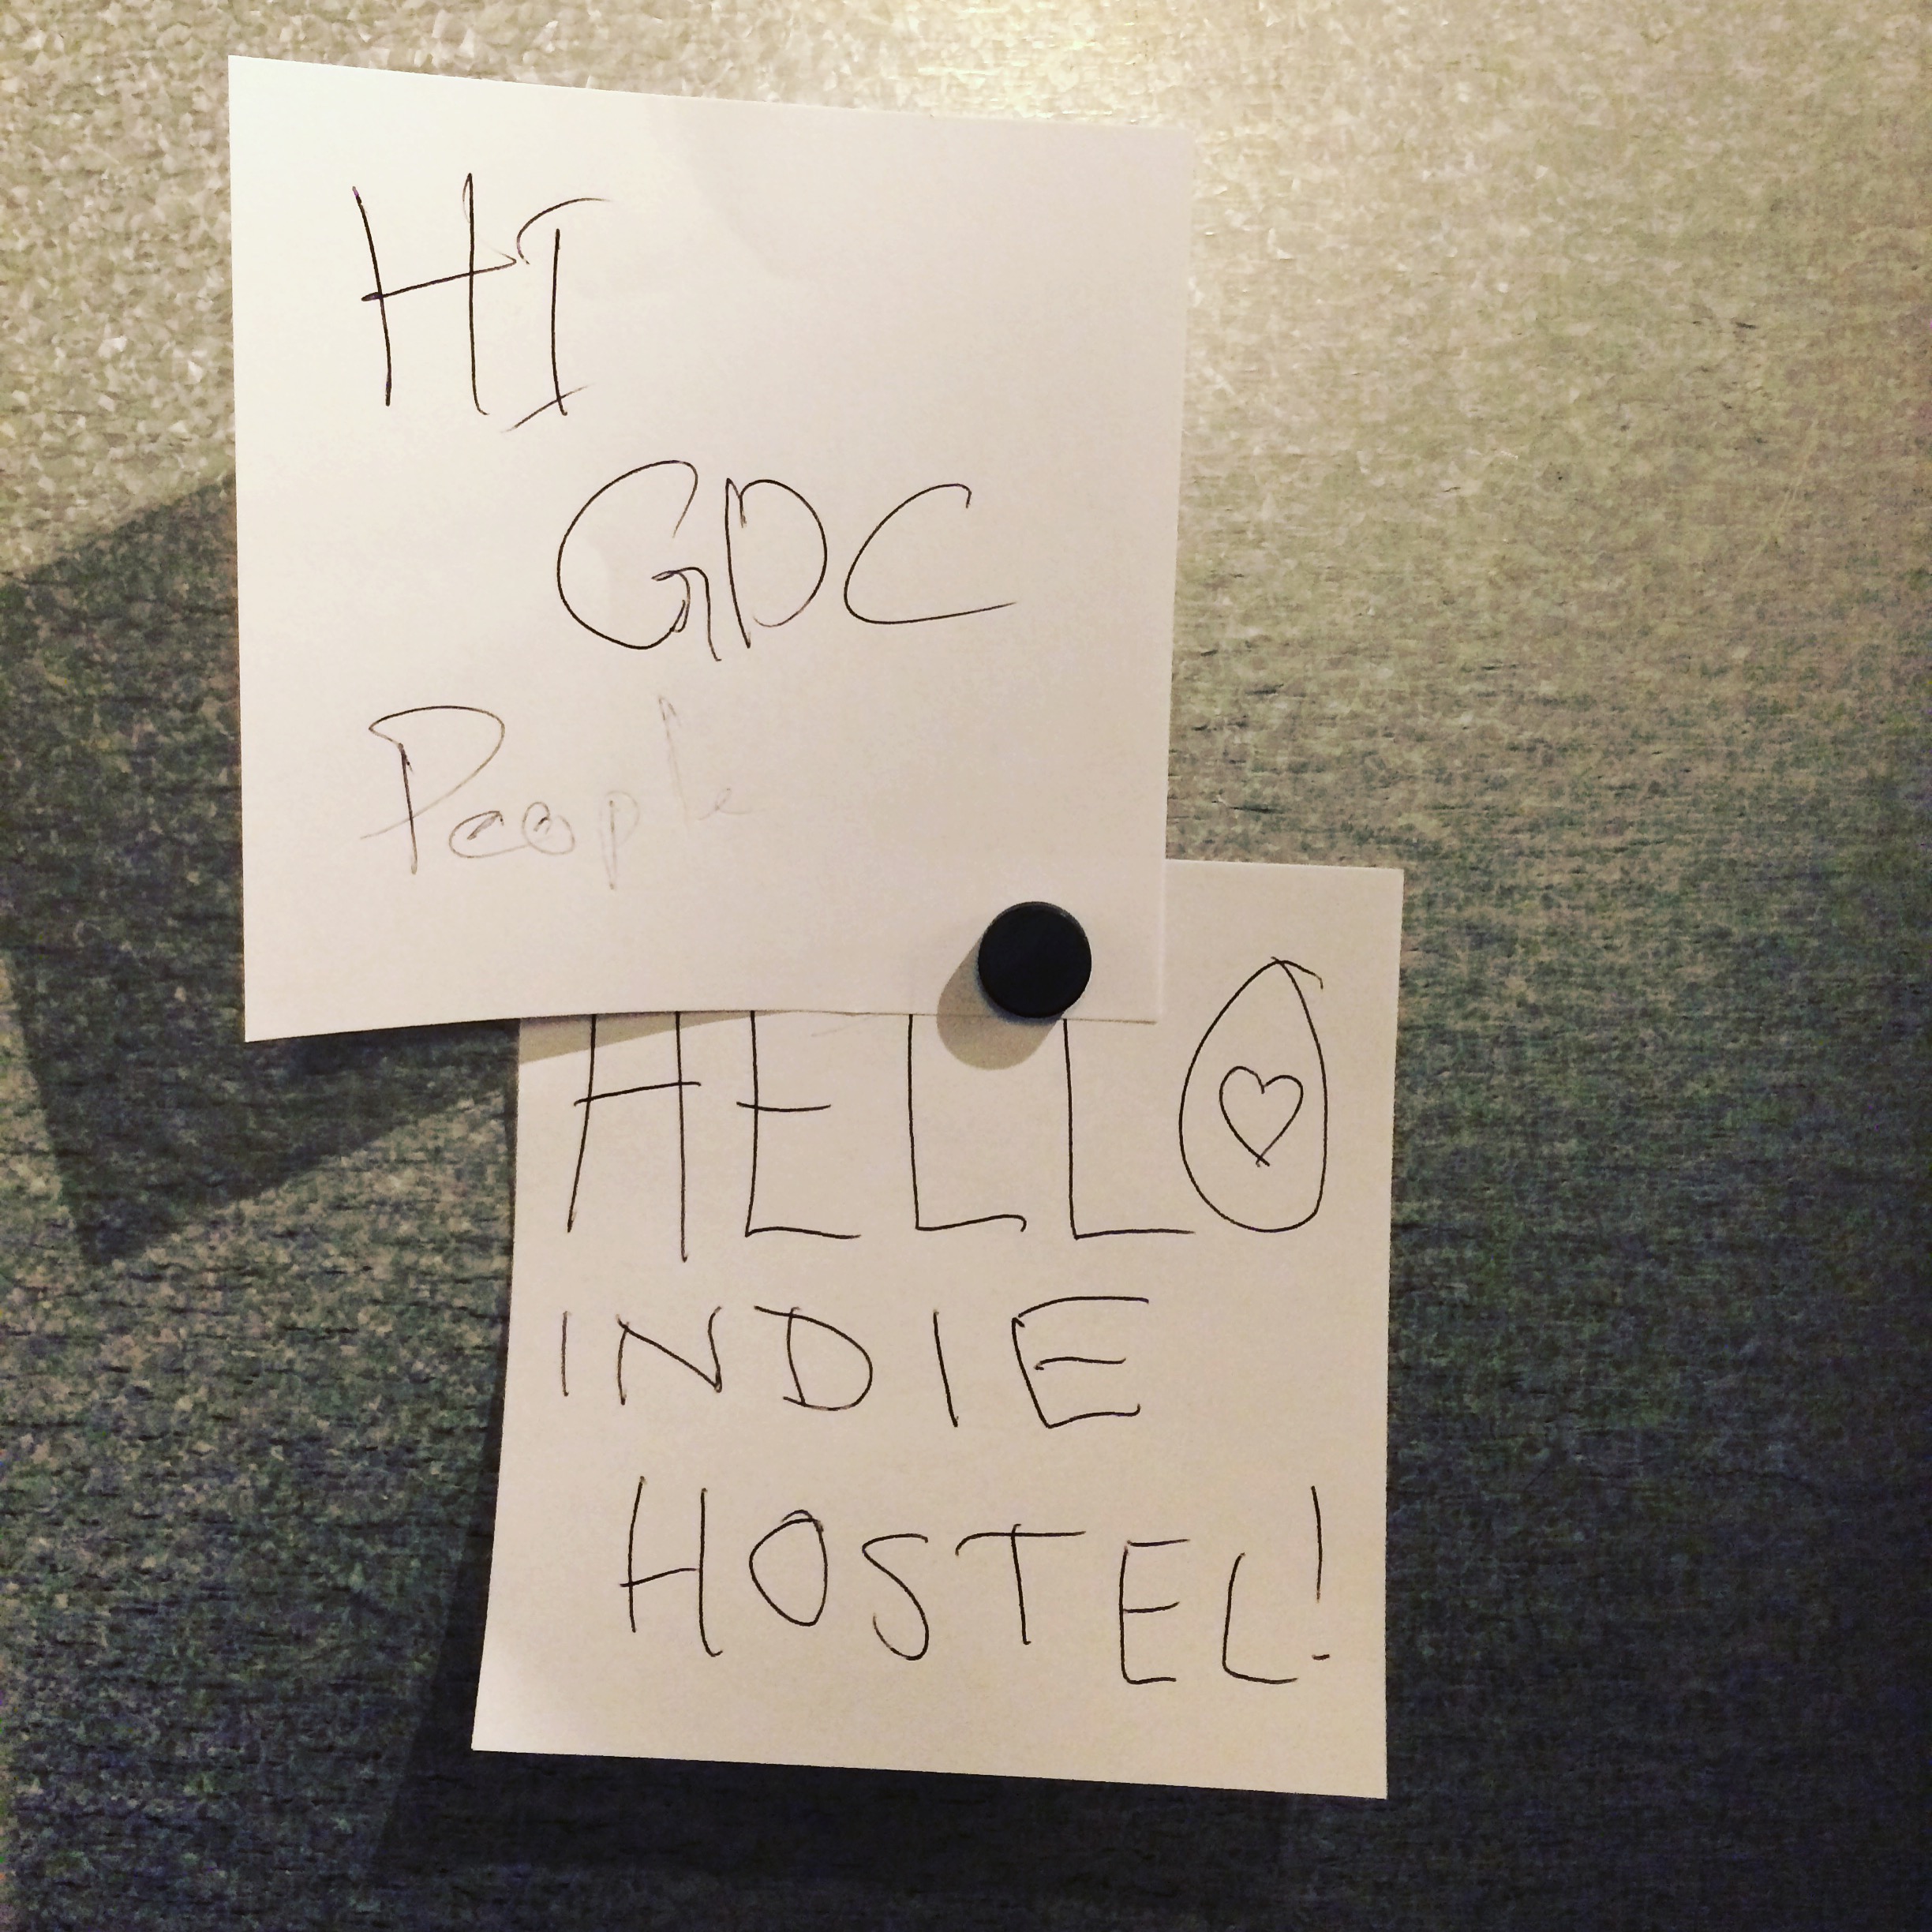 HI
GDC
People
HELLO
INDIE
HOSTEL!